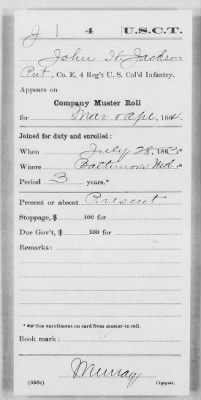 J | 4 | U.S.C.T.
John H. Jackson
Pvt, Co. E, 4 Reg't U. S. Col'd Infantry.
Appears on
Company Muster Roll
for Mar & Apl, 1864.
Joined for duty and enrolled:
When July 28, 1863.
Where Baltimore Md.*
Period 3 years.*
Present or absent Present
Stoppage, $ 100 for
Due Gov't, $ 100 for
Remarks:
* See enrollment on card from muster-in roll.
Book mark:
Murray
(358c) Copyist.